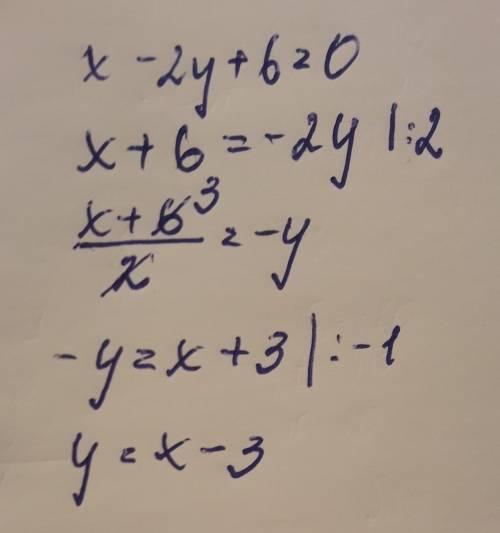 x - 2y + 6 = 0
x + 6 = -2y |:2
(x + 6^3)/2 = -y
-y = x + 3 |: -1
y = x - 3